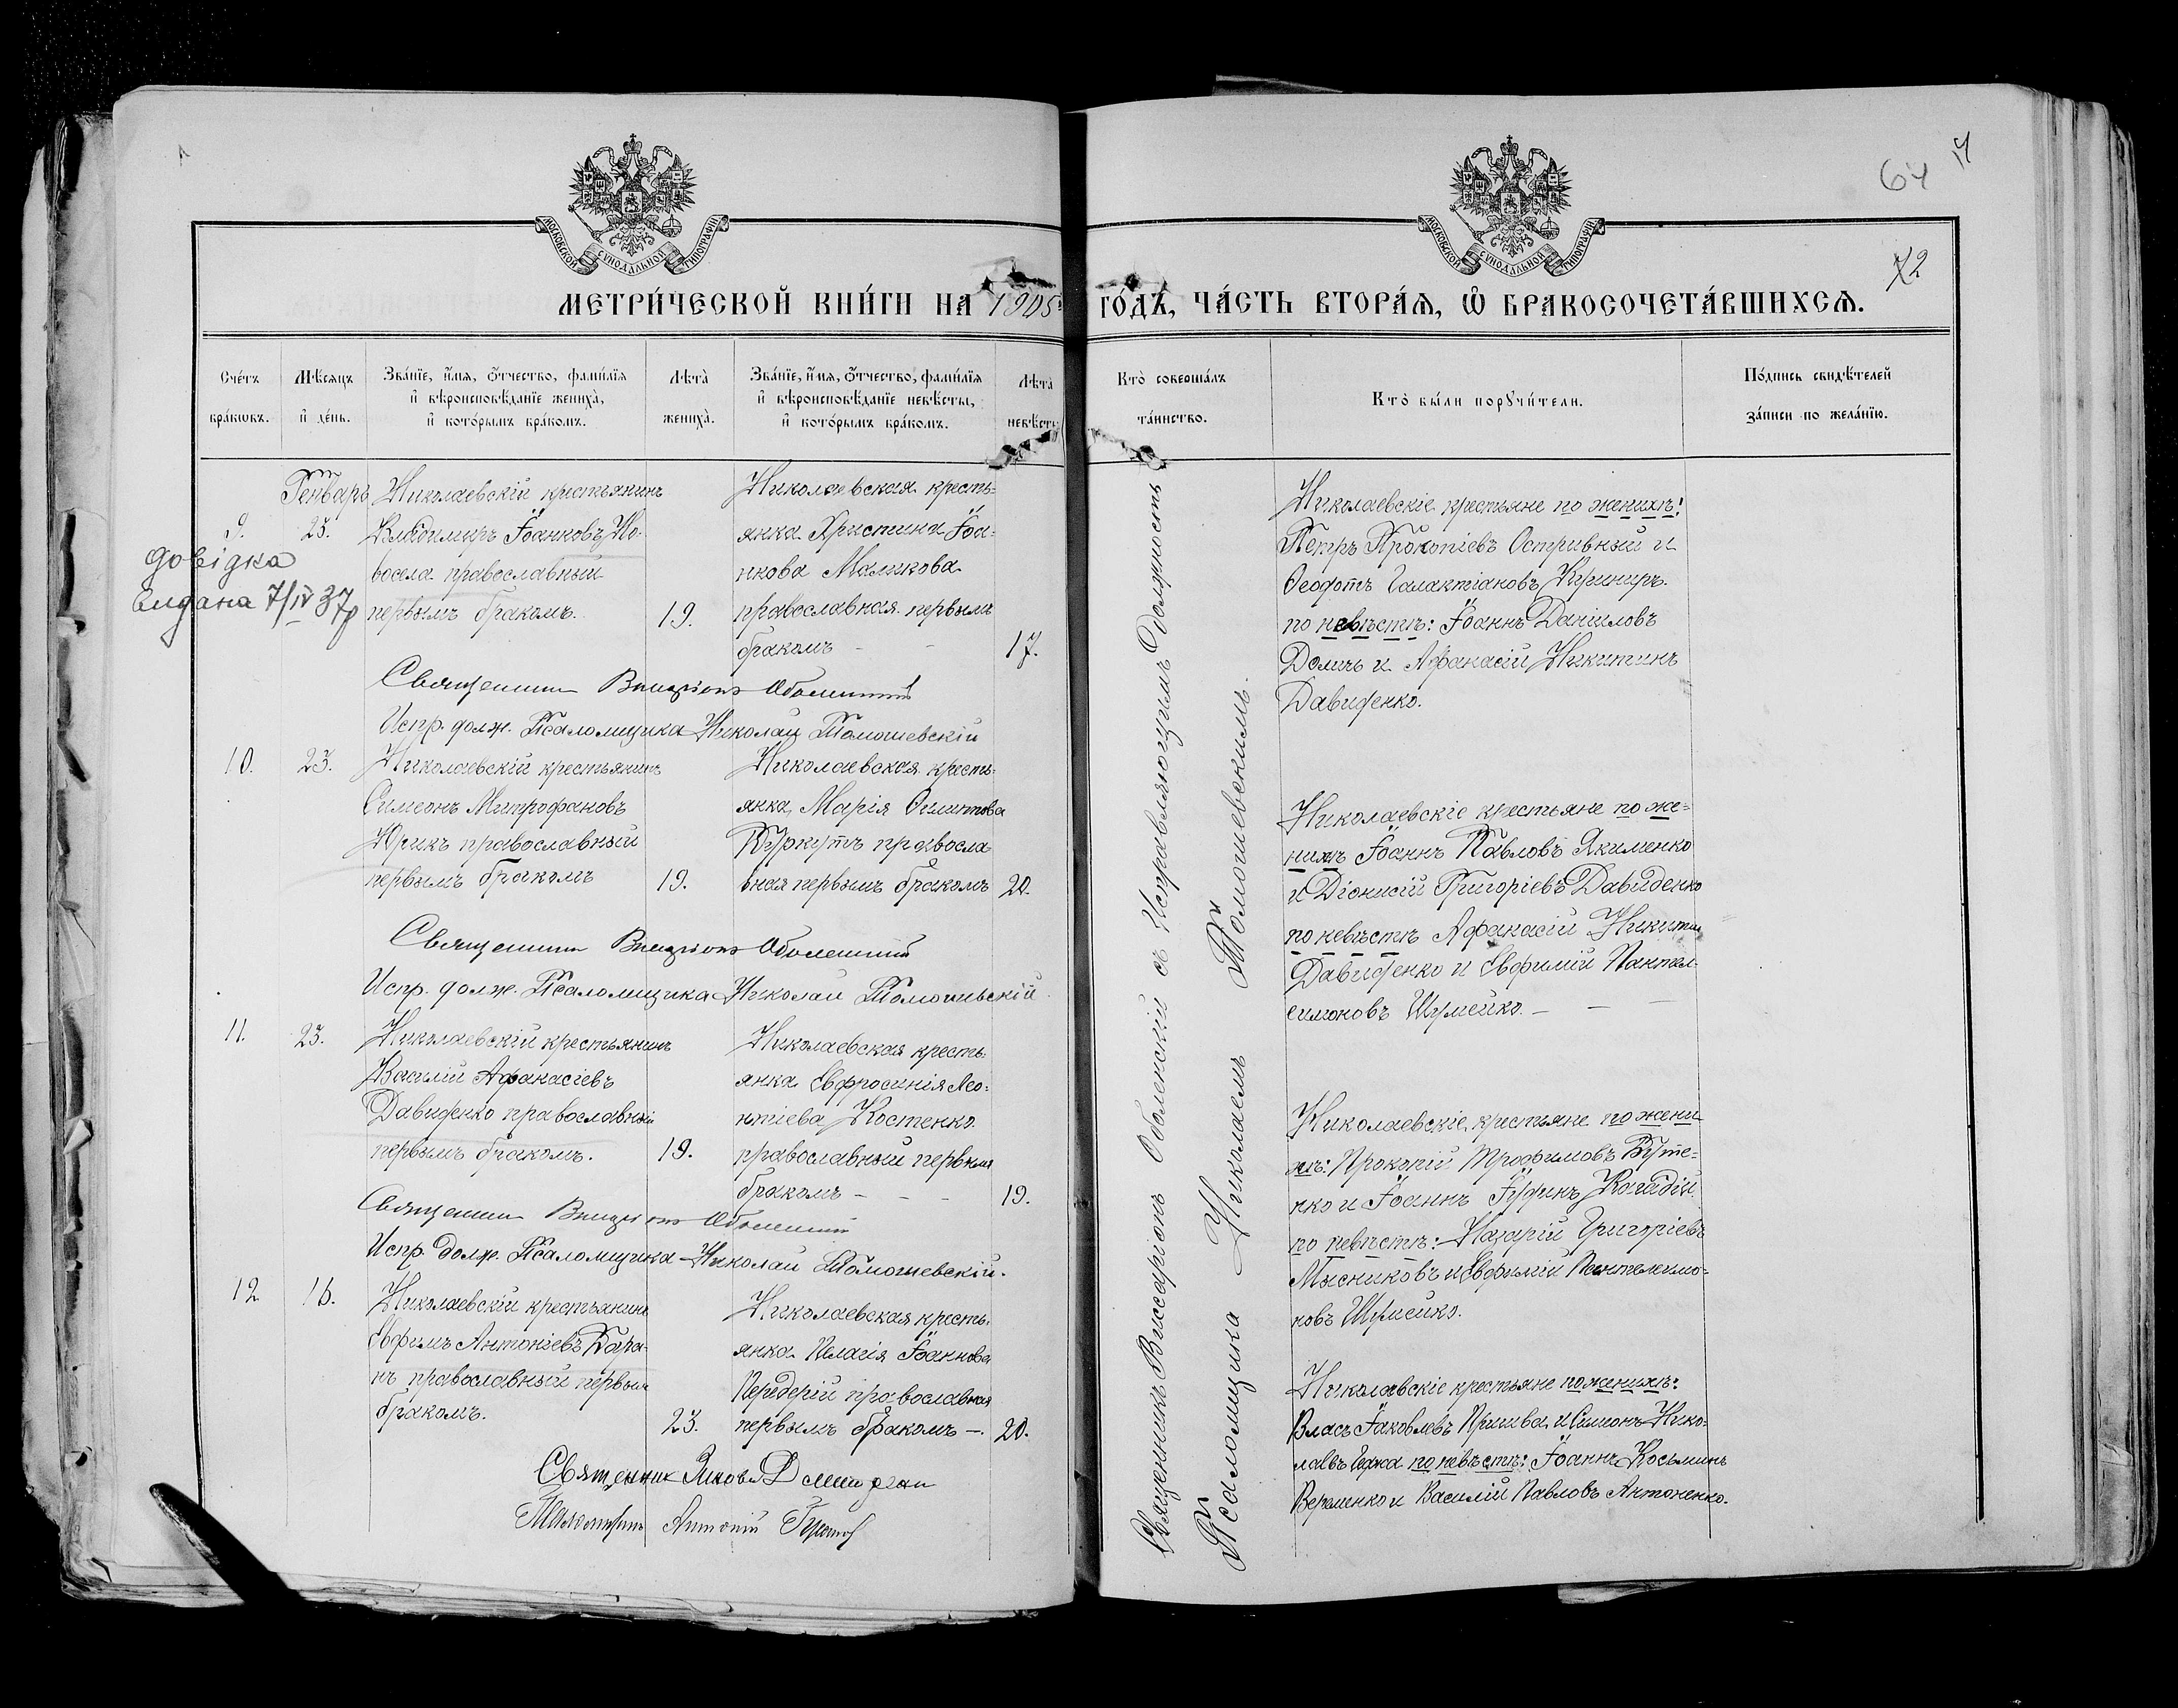 64 17
72
МОСКОВСКОЙ СѴНОДАЛЬНОЙ ТИПОГРАФІИ
МОСКОВСКОЙ СѴНОДАЛЬНОЙ ТИПОГРАФІИ
МЕТРИ́ЧЕСКОЙ КНИ́ГИ НА 1905 ГО́ДЪ, ЧА́СТЬ ВТОРА́Ѧ, Ѿ БРАКОСОЧЕТА́ВШИХСѦ.
Сче́тъ бра́кѡвъ.
Мѣ́сѧцъ и҆ де́нь.
Зва́нїе, и҆́мѧ, ѻ҆́тчество, фами́лїѧ и҆ вѣроисповѣ́данїе жениха̀, и҆ кото́рымъ бра́комъ.
Лѣта̀ жениха̀.
Зва́нїе, и҆́мѧ, ѻ҆́тчество, фами́лїѧ и҆ вѣроисповѣ́данїе невѣ́сты, и҆ кото́рымъ бра́комъ.
Лѣта̀ невѣ́сты
Кто̀ соверша́лъ та́инство.
Кто̀ бы́ли порꙋчи́тели.
По́дпись свидѣ́телей за́писи по жела́нїю.
Генварь
9. 23.
довідка
видана 7/IV 37р
Николаевскій крестьянинъ
Владимиръ Іоанновъ Но-
восела православный
первымъ бракомъ. 19.
Николаевская кресть-
янка Христина Іоа-
ннова Маликова
православная первымъ
бракомъ - - 17.
Николаевскіе крестьяне по женихѣ:
Петръ Прокопіевъ Остривный и
Ѳеодотъ Галактіоновъ Кушниръ.
по невѣстѣ: Іоаннъ Даниловъ
Долигъ и Афанасій Никитинъ
Давиденко.
Священник Виссаріонъ Оболенскій
Испр. долж. Псаломщика Николай Томошевскій
10. 23.
Николаевскій крестьянинъ
Симеонъ Митрофановъ
Юрикъ православный
первымъ бракомъ 19.
Николаевская кресть-
янка Марія
православ
ная первымъ бракомъ 20.
Николаевскіе крестьяне по же-
нихѣ Іоаннъ Павловъ Якименко
и Діонисій Григоріевъ Давиденко
по невѣстѣ Афанасій Никитинъ
Давиденко и Евфимій Пантел-
еимоновъ Шумейко. - -
Священник Виссаріонъ Оболенскій
Испр. долж. Псаломщика Николай Томошевскій.
11. 23.
Николаевскій крестьянинъ
Василій Афанасіевъ
Давиденко православный
первымъ бракомъ. 19.
Николаевская кресть-
янка Евфросинія Лео-
нтіева Костенко
православный первымъ
бракомъ - - - 19.
Николаевскіе крестьяне по жени-
хѣ: Прокопій Трофимовъ Буте-
нко и Іоаннъ
по невѣстѣ: Назарій Григоріевъ
Мысниковъ и Евфимій Пантелеимо-
новъ Шумейко.
Священник Виссаріонъ Оболенскій
Испр. долж. Псаломщика Николай Томошевскій.
12 16.
Николаевскій крестьянинъ
Евфимъ Антоніевъ Бара-
нъ православный первымъ
бракомъ. 23.
Николаевская кресть-
янка Пелагія Іоаннова
Передерій православная
первымъ бракомъ -. 20.
Николаевскіе крестьяне по женихѣ:
Власъ Іаковлевъ и Симеонъ Нико-
лаевъ по невѣстѣ: Іоаннъ Косьминъ
Веременко и Василій Павловъ Антоненко.
Священник Яковъ
Антоній
Священникъ Виссаріонъ Оболенскій съ Исправляющимъ Должность
Псаломщика Николаемъ Томошевскимъ.